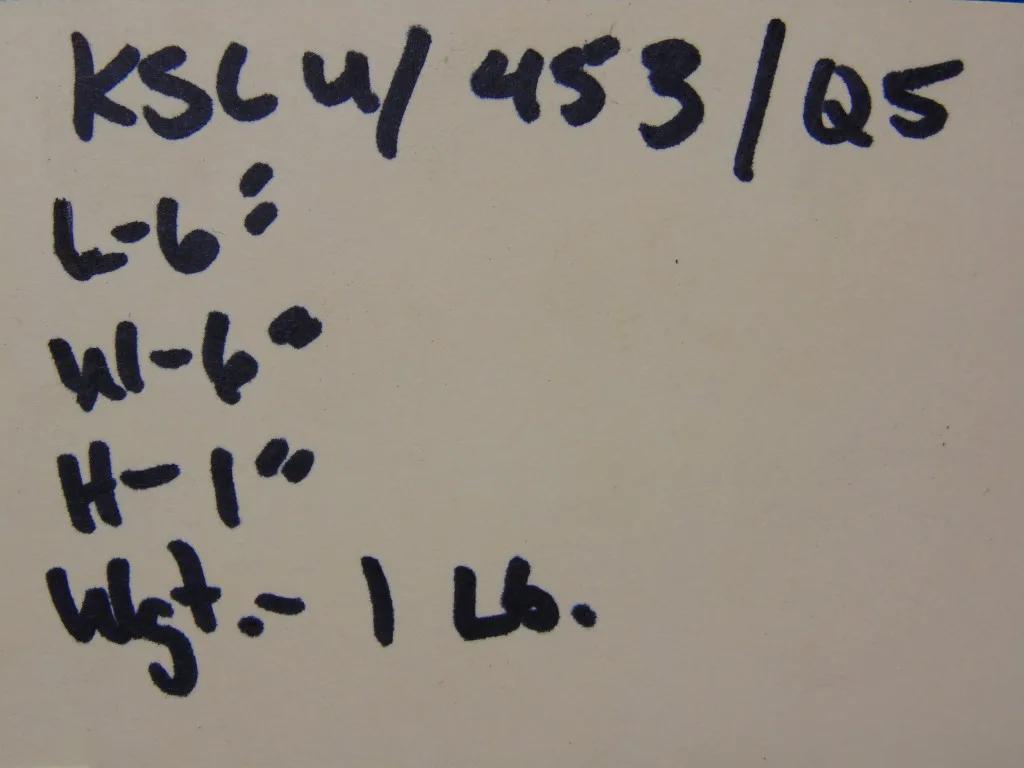 KSC W/ 453 / Q5
L-6"
W-6"
H-1"
Wgt.- 1 Lb.